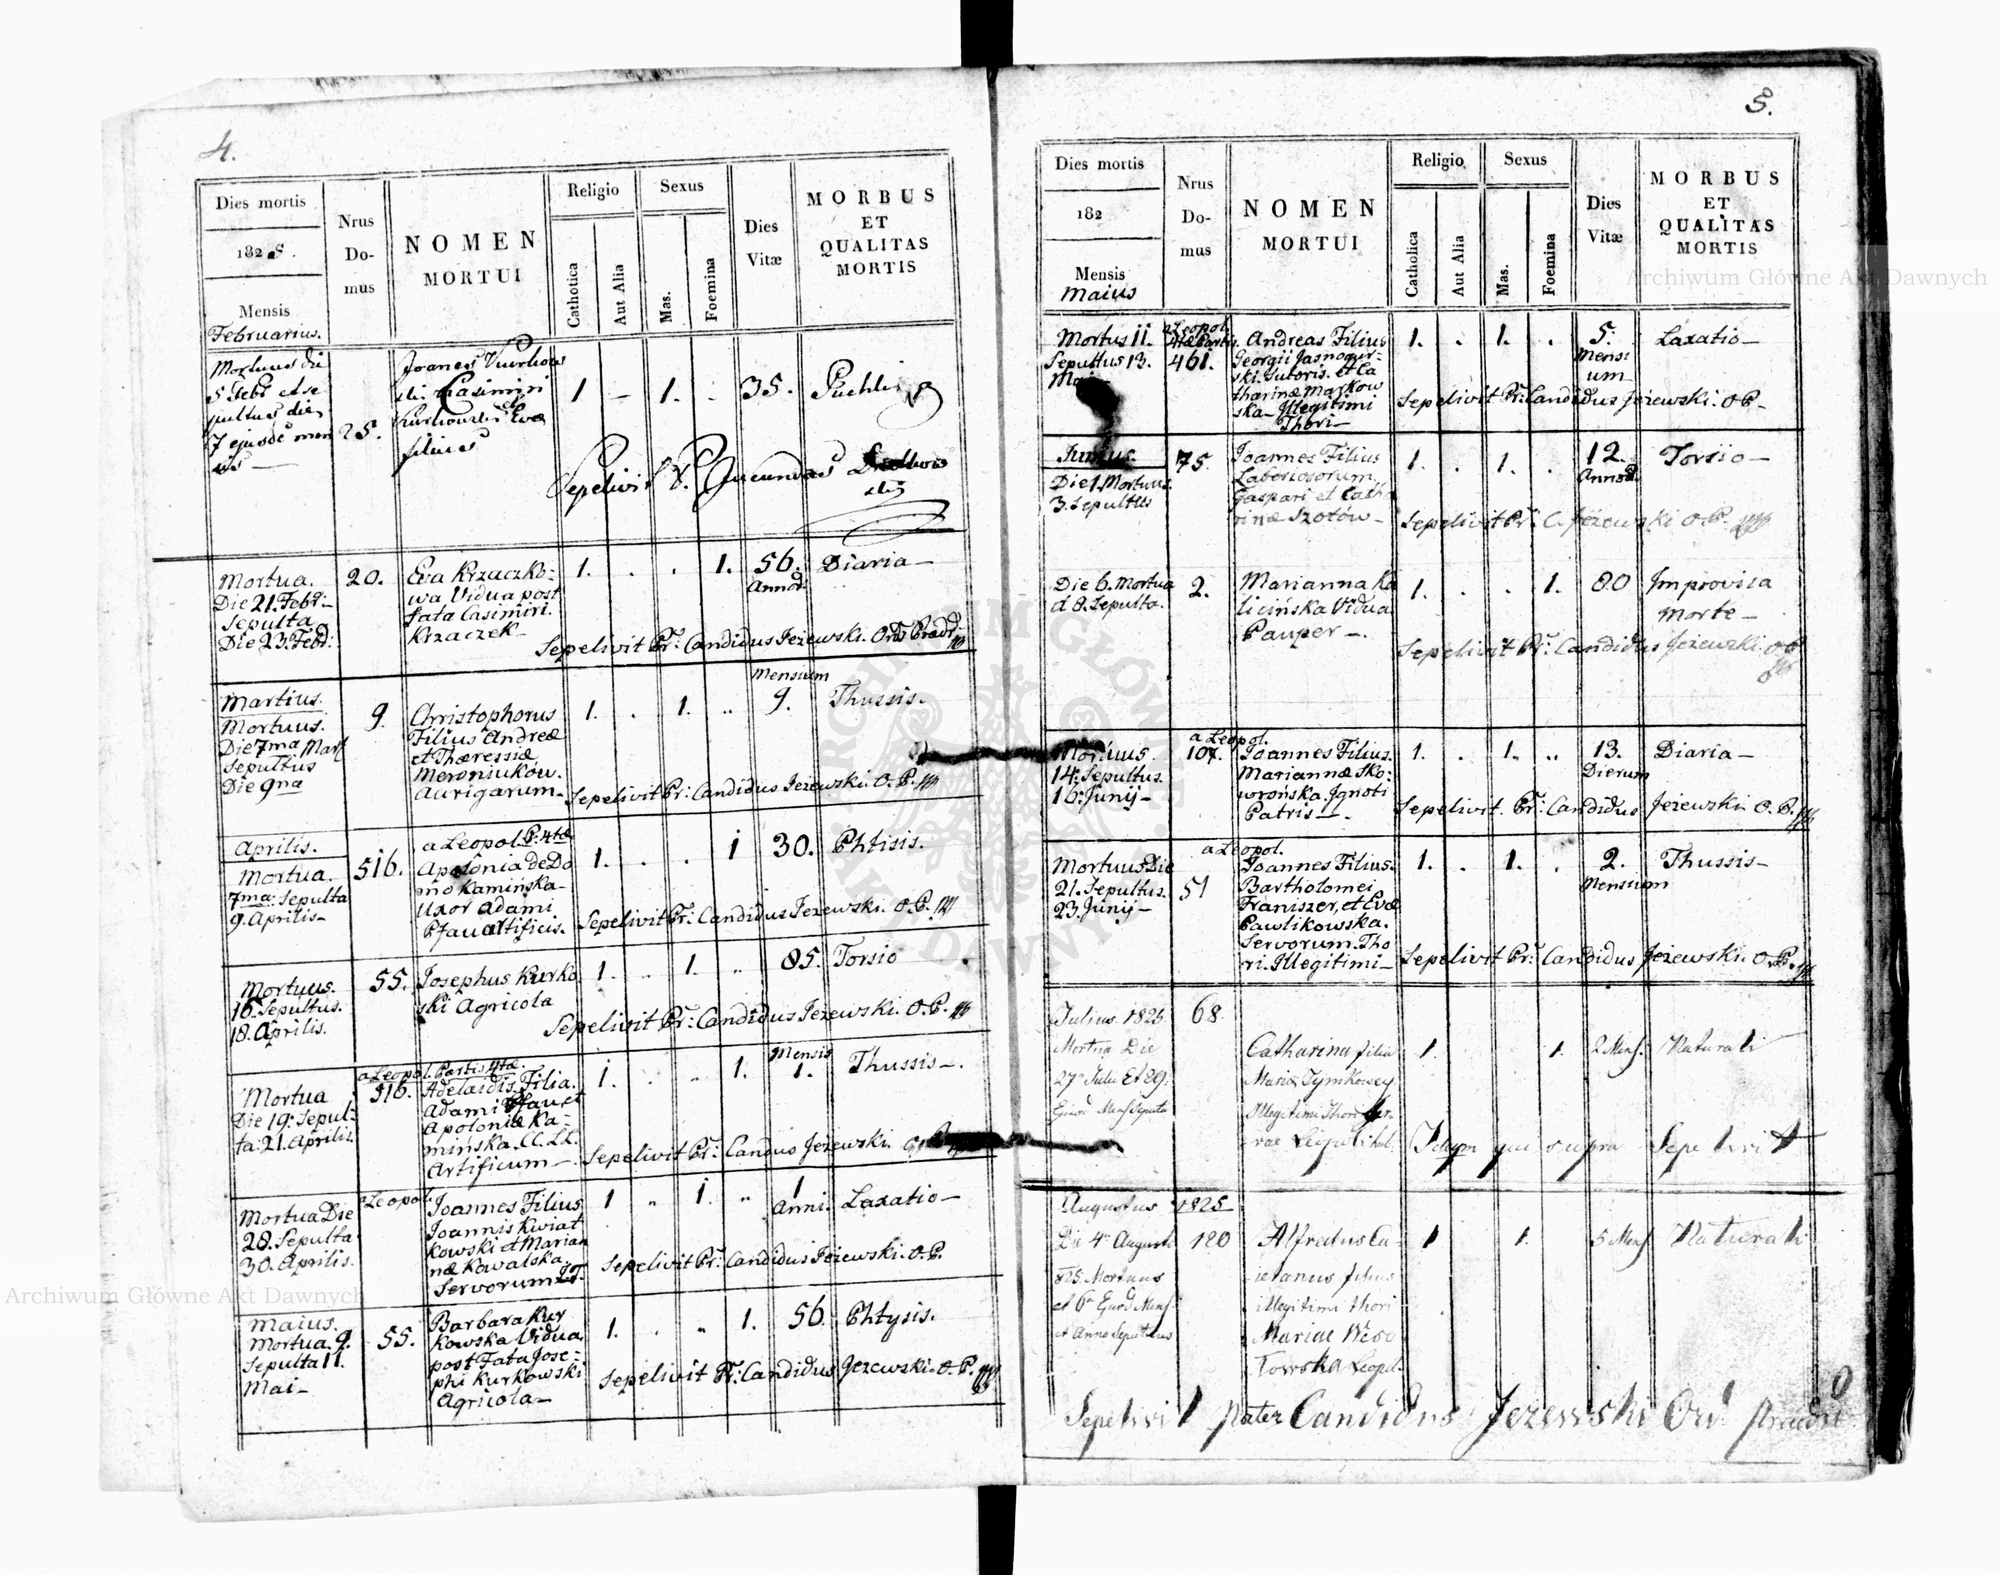 4.
Dies mortis
1825.
Mensis
Februarius.
Nrus
Do-
mus
NOMEN
MORTUI
Religio
Catholica
Aut Alia
Sexus
Mas.
Foemina
Dies
Vitæ
MORBUS
ET
QUALITAS
MORTIS
Mortuus die
5 Febr et se
pultus die
7 ejusdē men
sis —
25.
Joannes
Casimiri
et
Evæ
filius
1 — 1. 35. Puchli
Sepelivit P. Jucundus
Mortua.
Die 21. Febr:
Sepulta
Die 23. Febr:
20.
Eva Krzaczko-
wa Vidua post
fata Casimiri.
Krzaczek—
1. . . 1. 56.
Annor:
Diaria—
Sepelivit Pr: Candidus Jeżewski. Ord: Prædi:
Martius.
Mortuus.
Die 7ma Mar
Sepultus
Die 9na
9.
Christophorus
Filius Andreæ
et Thæressiæ
Meroniuków.
Aurigarum—
1. . 1. „
Mensium
9.
Thussis.
Sepelivit Pr: Candidus Jeżewski. O. P.
Aprilis.
Mortua.
7ma: Sepulta
9. Aprilis—
516.
a Leopol. P. 4tæ
Apolonia de Do
mo Kamińska—
Uxor Adami
Pfau Artificis.
1. . . 1 30. Phtisis.
Sepelivit Pr: Candidus Jeżewski. O. P.
Mortuus.
16. Sepultus.
18. Aprilis.
55.
Josephus Kurko
ski Agricola
1. „ 1. „ 85. Torsio
Sepelivit Pr: Candidus Jeżewski. O. P.
Mortua
Die 19: Sepul-
ta. 21. Aprilis.
a Leopol. Partis 4tæ.
516.
Adelaidis Filia.
Adami Pfau et
Apoloniæ Ka-
mińska. CC. LL.
Artificum—
1. . „ 1.
Mensis
1.
Thussis—.
Sepelivit Pr: Candus Jeżewski.
Mortua Die
28. Sepulta
30. Aprilis.
a Leopol.
Joannes Filius
Joannis Kwiat
kowski et Marian
næ Kowalska
Servorum
1 „ 1. „ 1
Anni.
Laxatio—
Sepelivit Pr: Candidus Jeżewski. O. P.
Maius.
Mortua. 9.
Sepulta 11.
Mai—
55.
Barbara Kur
kowska Vidua
post Fata Jose-
phi Kurkowski
Agricola—
1. . „ 1. 56. Phtysis.
Sepelivit Pr: Candidus Jeżewski. O. P.
5.
Dies mortis
182
Mensis
Maius
Nrus
Do-
mus
NOMEN
MORTUI
Religio
Catholica
Aut Alia
Sexus
Mas.
Foemina
Dies
Vitæ
MORBUS
ET
QUALITAS
MORTIS
Mortus 11.
Sepultus 13.
a Leopol.
4tæ Partis.
461.
Andreas Filius
Georgii Jasnogur-
ski. Sutoris. et Ca
tharinæ Markow
ska— Illegitimi
Thori—
1. . 1. . 5.
Mensi
um—
Laxatio—
Sepelivit Pr: Candidus Jeżewski. O P—
Junius.
Die 1. Mortuus.
3. Sepultus
75.
Joannes Filius
Laboriosorum.
Gaspari et Catha
rinæ Szotów—
1. . 1. . 12.
Annor.
Torsio—
Sepelivit Pr: C. Jeżewski O. P.
Die 6. Mortua
d 8. Sepulta.
2.
Marianna Ka
licińska Vidua
Pauper—.
1. . . 1. 80 Improvisa
Morte—
Sepelivit Pr: Candidus Jeżewski. O P
Mortuus.
14: Sepultus.
16: Junij—
a Leopol.
107.
Joannes Filius.
Mariannæ Sko-
wrońska. Ignoti
Patris—.
1. . 1. „ 13.
Dierum
Diaria—
Sepelivit. Pr: Candidus Jeżewski. O. P.
Mortuus Die
21. Sepultus.
23. Junij—
a Leopol.
51
Joannes Filius.
Bartholomei
Franiszer, et Evæ
Pawlikowska.
Servorum. Tho
ri. Illegitimi—
1. . 1. . 2.
Mensium
Thussis—
Sepelivit Pr: Candidus Jeżewski. O. P.
Julius 1825
Mortua Die
27ma Julii Et 29.
68.
Catharina filia
Mariæ
Illegitimi Thori
1. 1. 2 Mens. Naturali
Idem qui supra Sepelivit
Augustus 1825
Die 4ta Augusti
825 Mortuus
et Anno Sepultus
120
Alfredus Ca-
ietanus filius
illegitimi thori
Mariae Weso
łowska Leopol.
1 1. 5 Mens. Naturali
Sepelivit Pater Candidus Jeżewski Ord Praedic
Archiwum Główne Akt Dawnych
Archiwum Główne Akt Dawnych
ARCHIWUM GŁÓWNE AKT DAWNYCH